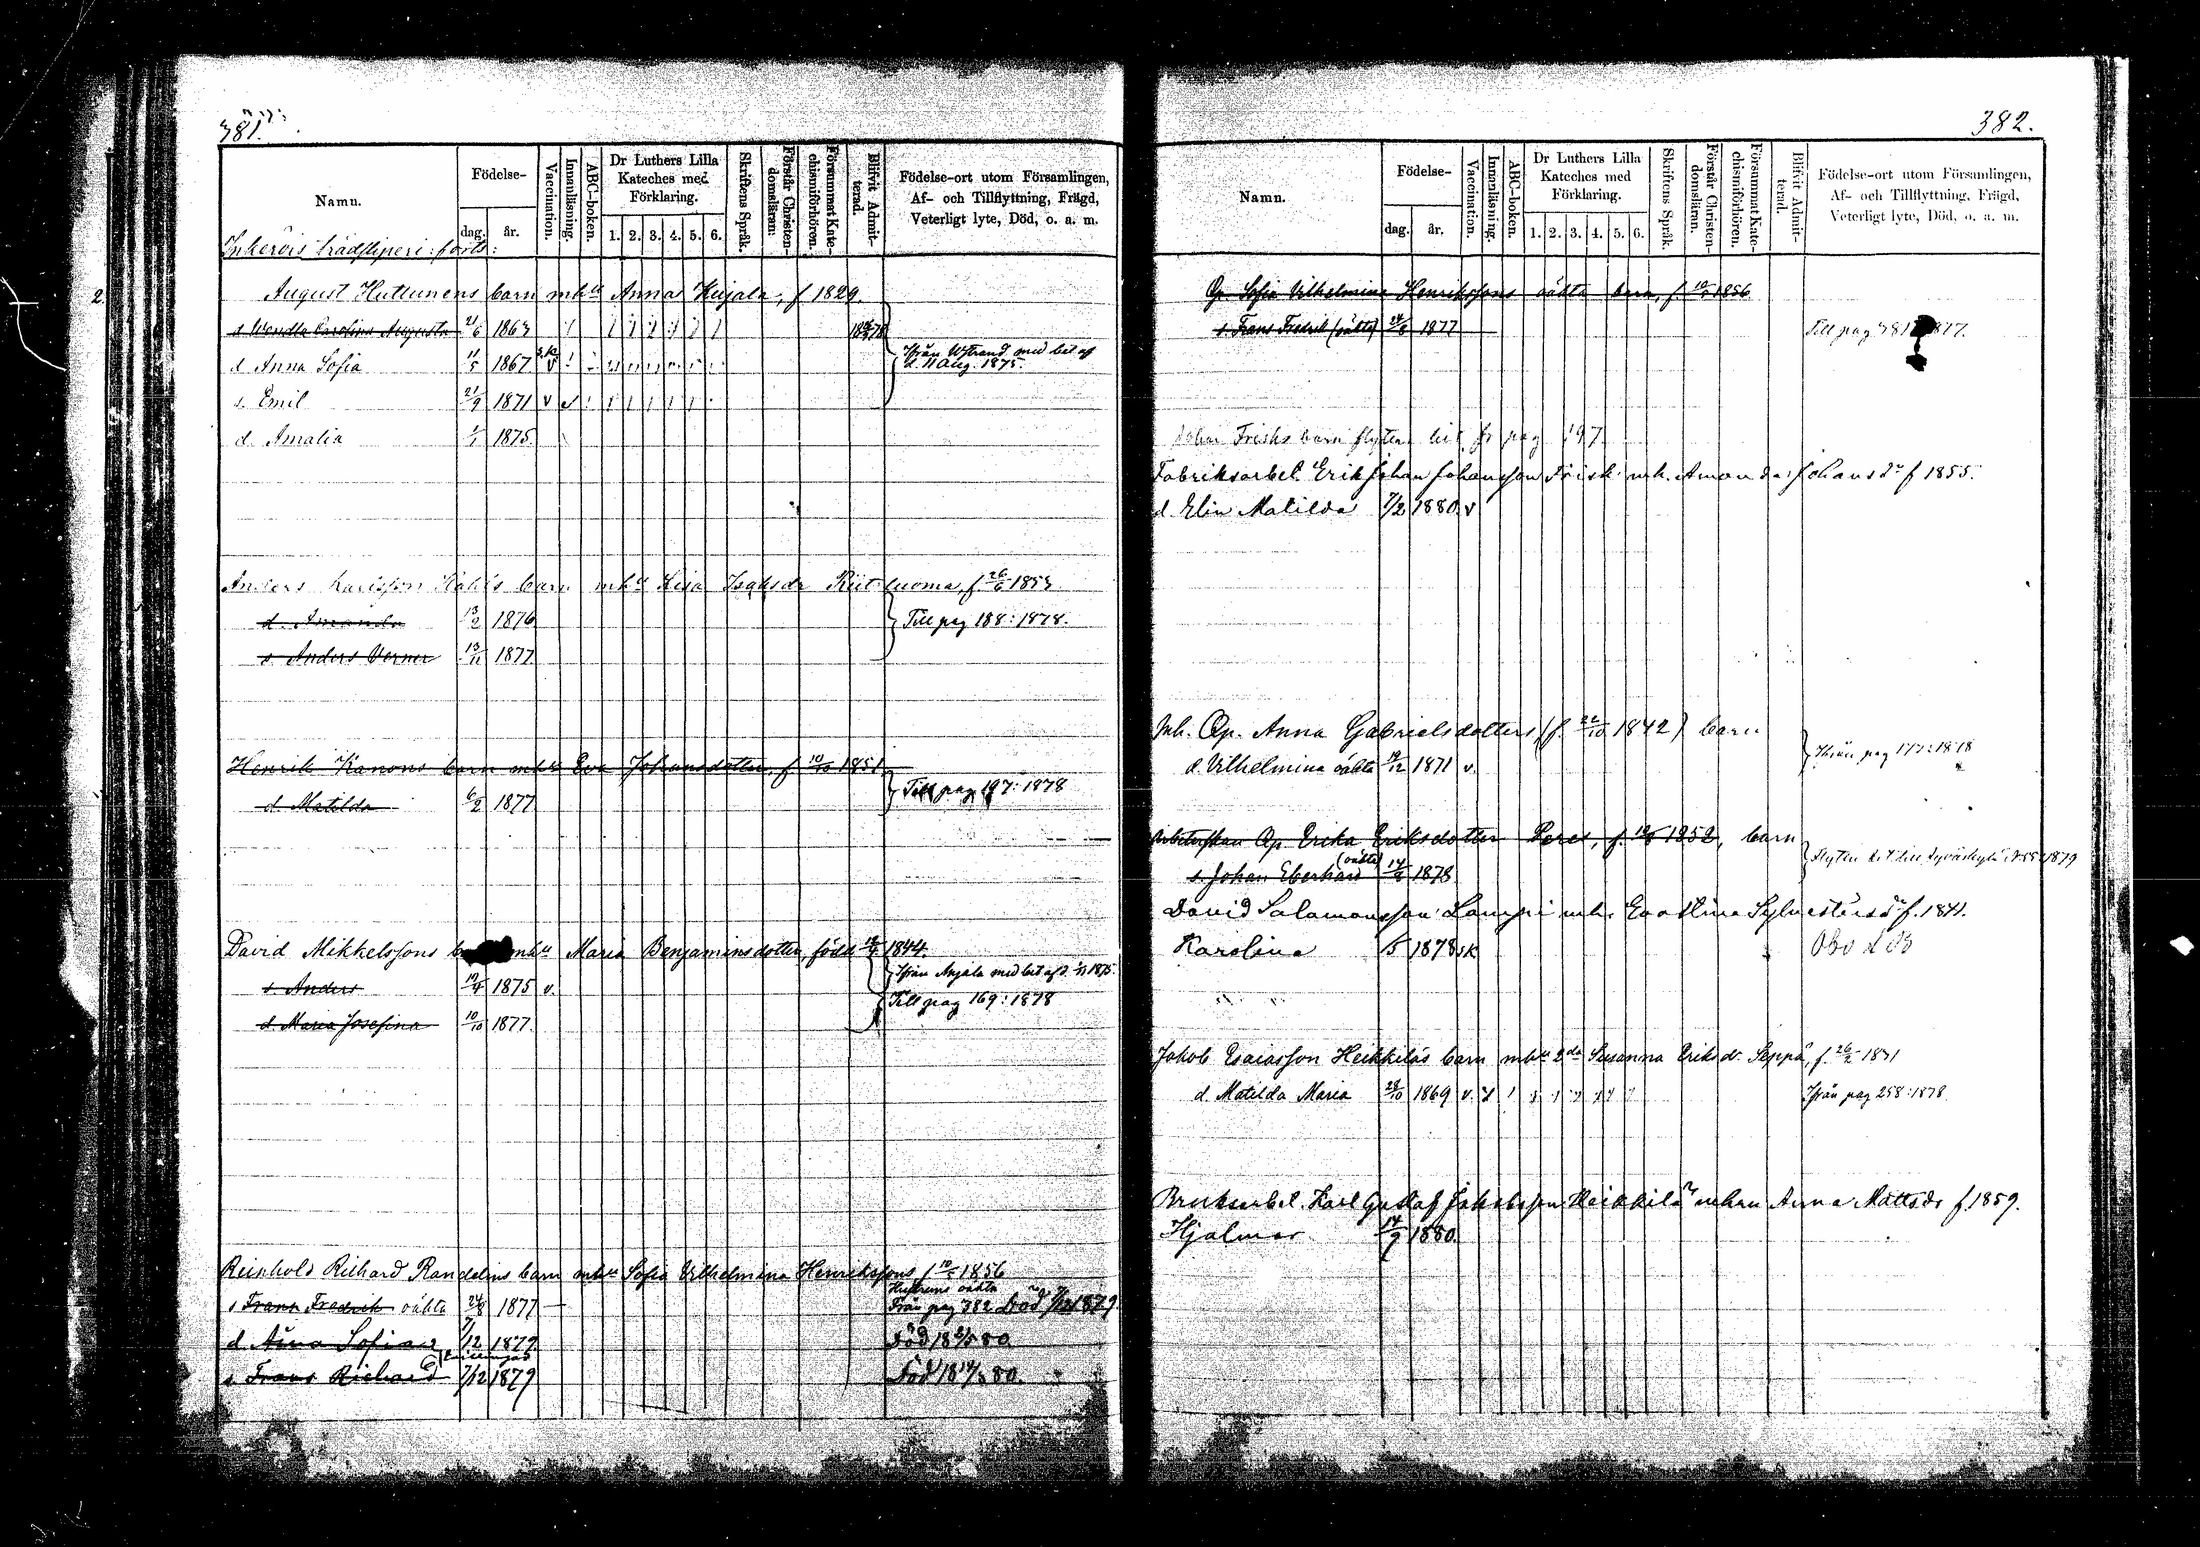 381.
Namn.
Födelse-
dag.
år.
Vaccination.
Innanläsning.
ABC-boken.
Dr Luthers Lilla
Kateches med
Förklaring.
1. 2. 3. 4. 5. 6.
Skriftens Språk.
Förstår Christen-
domsläran:
Försummat Kate-
chismiförhören.
Blifvit Admit-
terad.
Födelse-ort utom Församlingen,
Af- och Tillflyttning, Frägd,
Veterligt lyte, Död, o. a. m.
Inkerois trädsliperi: forts:
2. August Huttunens barn mhu Anna Kujala, f 1829.
s Wendla Carolina Augusta 21/6 1863
d Anna Sofia 11/5 1867 v
Ifrån Wstrand med bet af
d. 11 Aug. 1875.
s. Emil 21/9 1871 v
d. Amalia 1875.
Anders Karlsson Kahls barn mhu Lisa Isaksdr f. 26/6 1853
d. Amanda 13/2 1876
Till pag 188: 1878.
s Anders Verner 13/11 1877
Henrik Kanons barn mhu Eva Johansdotter, f 10/10 1851
d Matilda 6/2 1877
Till pag 197: 1878
David Mikkelssons mhu Maria Benjaminsdotter, född 1844.
s Anders 19/4 1875 v.
Ifrån Anjala med bet af 1875
Till pag 169: 1878
d Maria Josefina 10/10 1877.
Reinhold Richard Randelins barn mhu Sofia Vilhelmina Henrikssons f 10/5 1856
s Frans Fredrik oäkta 24/8 1877
Hustruns oäkta
Från pag 382 Död 7/12 1879
d Aina Sofia 7/12 1879.
Död 1880
s Frans Richard 7/12 1879
Död 1880.
382.
Namn.
Födelse-
dag.
år.
Vaccination.
Innanläsning.
ABC-boken.
Dr Luthers Lilla
Kateches med
Förklaring.
1. 2. 3. 4. 5. 6.
Skriftens Språk.
Förstår Christen-
domsläran.
Försummat Kate-
chismiförhören.
Blifvit Admit-
terad.
Födelse-ort utom Församlingen,
Af- och Tillflyttning, Frägd,
Veterligt lyte, Död, o. a. m.
Qp. Sofia Vilhelmina Henrikssons oäkta barn, f 10/5 1856
s Frans Fredrik (oäkta) 24/8 1877
Till pag 381
Johan Frisks barn flyttat hit fr pag 197
Fabriksarbet. Erik Johan Johansson Frisk mh. Amanda Johansdr f 1855.
d Elin Matilda 7/2 1880. v
Inh. Qp. Anna Gabrielsdotters (f. 22/10 1842) barn
d. Vilhelmina oäkta 19/12 1871 v.
Ifrån pag 177: 1878
Arbeterskan Qp Erika Eriksdotter f. 1852, barn
s. Johan Eberhard (oäkta) 14/8 1878
1879
David Salamonsson Lampi mh. Eva Stina Sylvestersdr f. 1841.
Karolina 1878
Jakob Esaiasson Heikkiläs barn mhu 2da Susanna Eriksdr Seppä, f. 26/2 1831
d. Matilda Maria 28/10 1869 v.
Ifrån pag 258: 1878
Bruksarbet. Karl Gustaf Jakobsson Heikkilä mhu Anna Mattsdr f. 1859.
Hjalmar 14/9 1880.